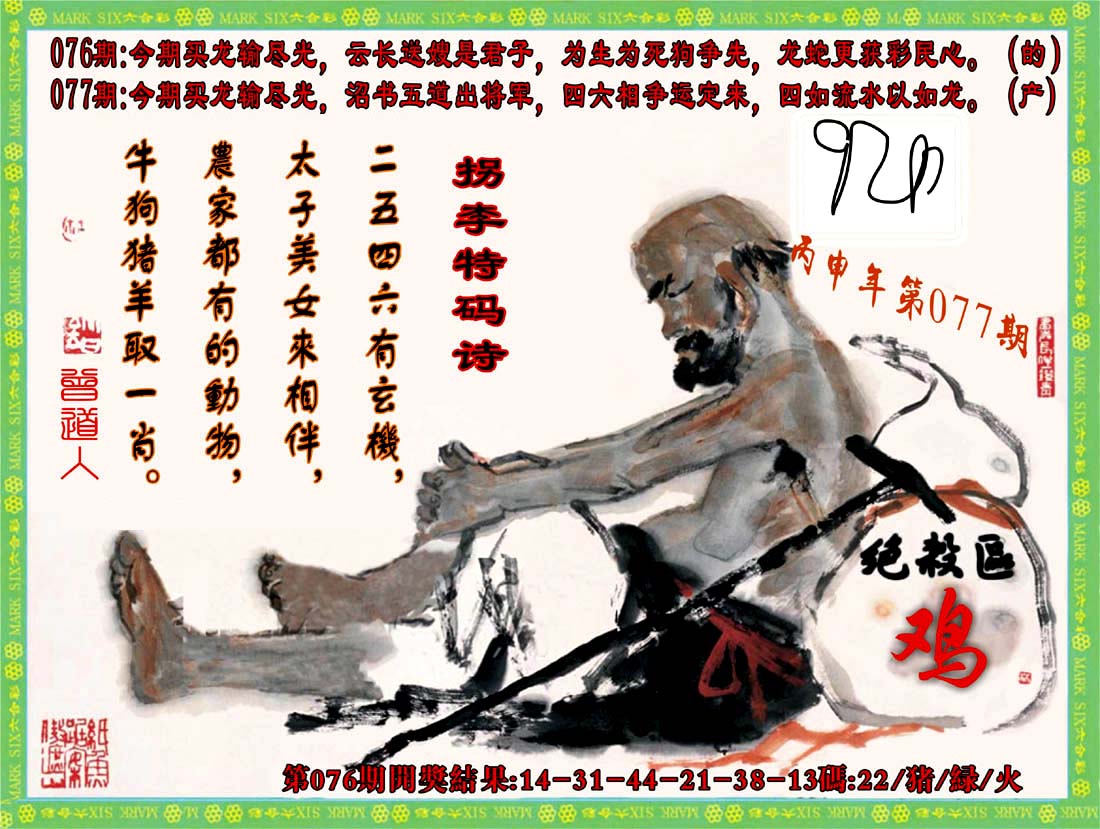 MARK SIX六合彩
076期:今期买龙输尽光，云长送嫂是君子，为生为死狗争先，龙蛇更获彩民心。(的)
077期:今期买龙输尽光，沼书五道出将军，四六相争运定来，四如流水以如龙。(产)
拐李特码诗
二五四六有玄機，
太子美女來相伴，
農家都有的動物，
牛狗猪羊取一肖。
曾道人
丙申年第077期
绝殺區
鸡
第076期開獎結果:14-31-44-21-38-13碼:22/猪/緑/火